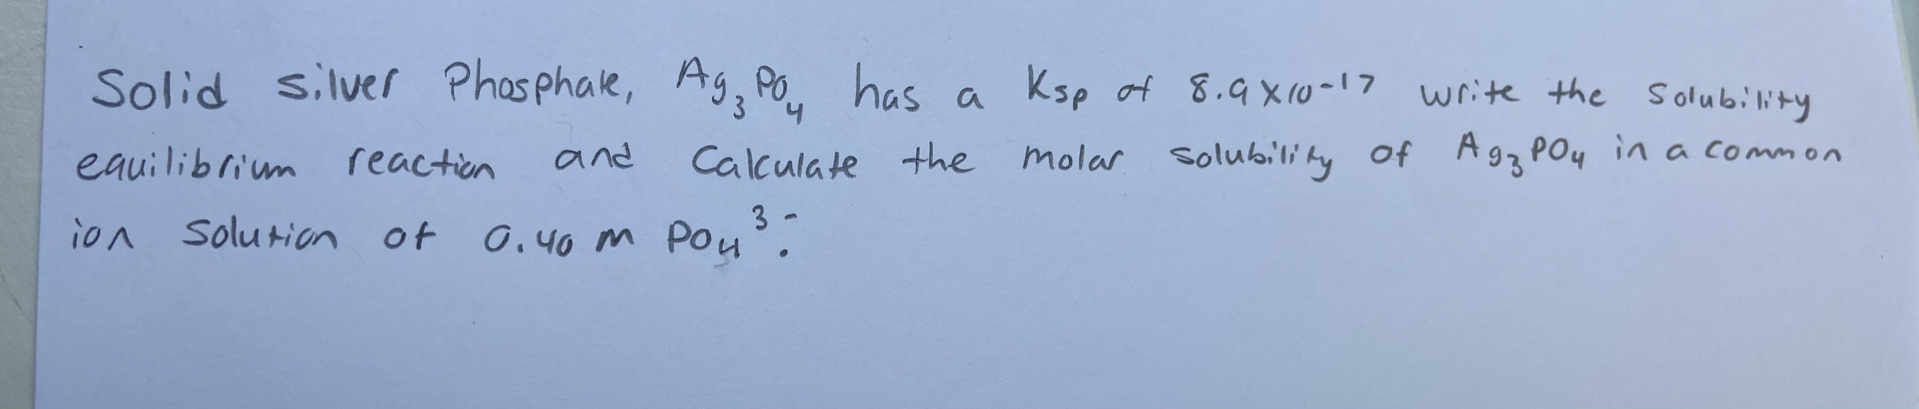 Solid silver Phosphate, Ag₃PO₄ has a Ksp of 8.9 x 10⁻¹⁷ write the solubility
equilibrium reaction and Calculate the molar solubility of Ag₃PO₄ in a common
ion solution of 0.40 m PO₄³⁻.